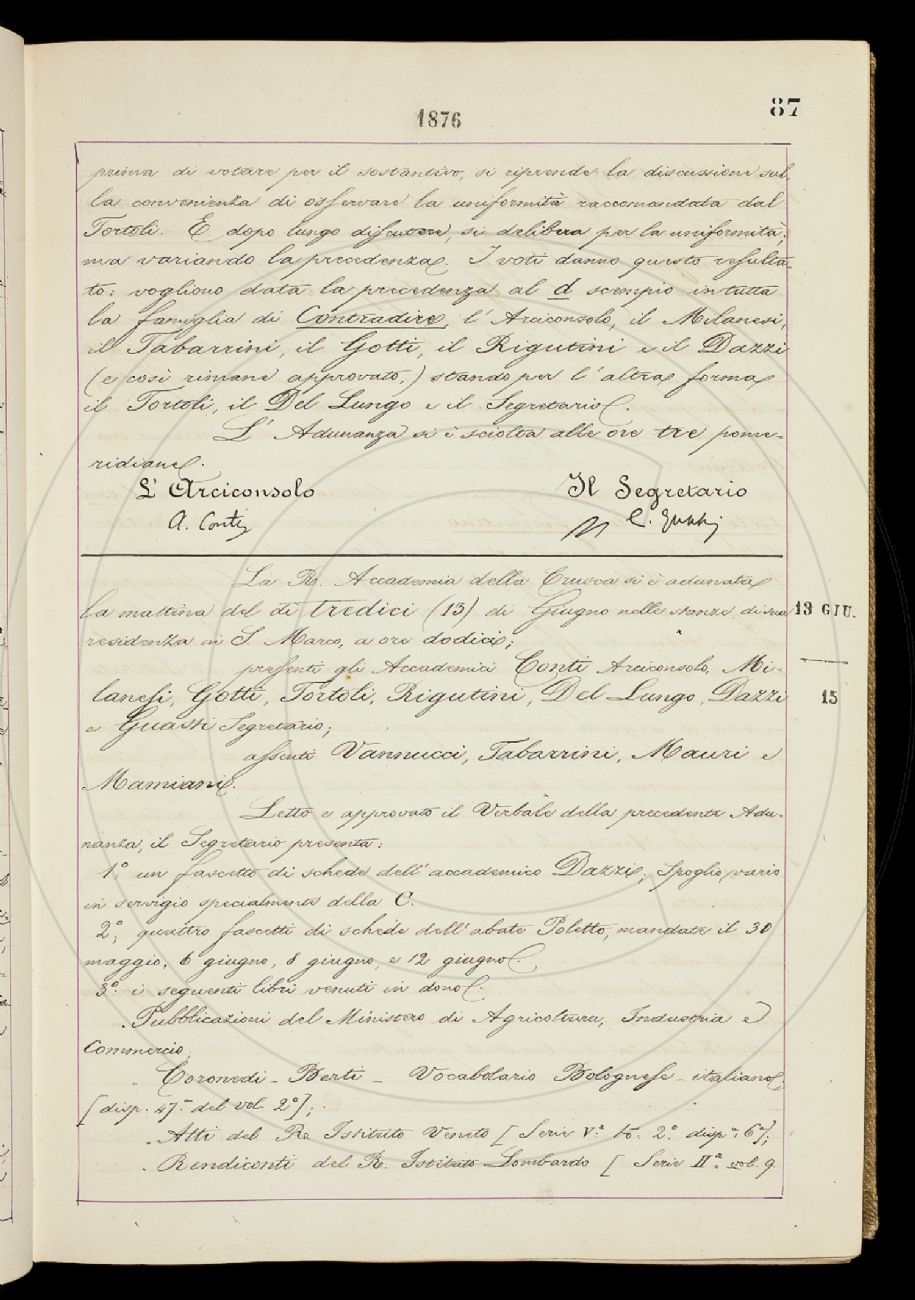 1876
87
prima di votare per il sostantivo, si riprende la discussione sul-
la convenienza di osservare la uniformità raccomandata dal
Tortoli. E dopo lungo discutere, si delibera per la uniformità;
ma variando la precedenza. I voti danno questo resulta-
to: vogliono data la precedenza al d scempio in tutta
la famiglia di Contradire, l'Arciconsolo, il Milanesi,
il Tabarrini, il Gotti, il Rigutini e il Dazzi
(e così rimane approvato,) stando per l'altra forma
il Tortoli, il Del Lungo e il Segretario.
L'Adunanza si è sciolta alle ore tre pome-
ridiane.
L'Arciconsolo
Il Segretario
A. Conti
C. Guasti
La R. Accademia della Crusca si è adunata
la mattina del dì tredici (13) di Giugno nelle stanze di sua
13 GIU.
residenza in S. Marco, a ore dodici;
presenti gli Accademici Conti Arciconsolo, Mi-
lanesi, Gotti, Tortoli, Rigutini, Del Lungo, Dazzi
15
e Guasti Segretario;
assenti Vannucci, Tabarrini, Mauri e
Mamiani.
Letto e approvato il Verbale della precedente Adu-
nanza, il Segretario presenta:
1° un fascetto di schede dell'accademico Dazzi, Spoglio vario
in servigio specialmente della C.
2°, quattro fascetti di schede dell'abate Poletto, mandate il 30
maggio, 6 giugno, 8 giugno, e 12 giugno.
3°. i seguenti libri venuti in dono.
.Pubblicazioni del Ministero di Agricoltura, Industria e
Commercio,
. Coronedi - Berti - Vocabolario Bolognese - italiano,
[disp. 47.ª del vol. 2°];
.Atti del R. Istituto Veneto [Serie V.ª to. 2° disp.ª 6ª];
. Rendiconti del R. Istituto Lombardo [Serie II.ª vol. 9.